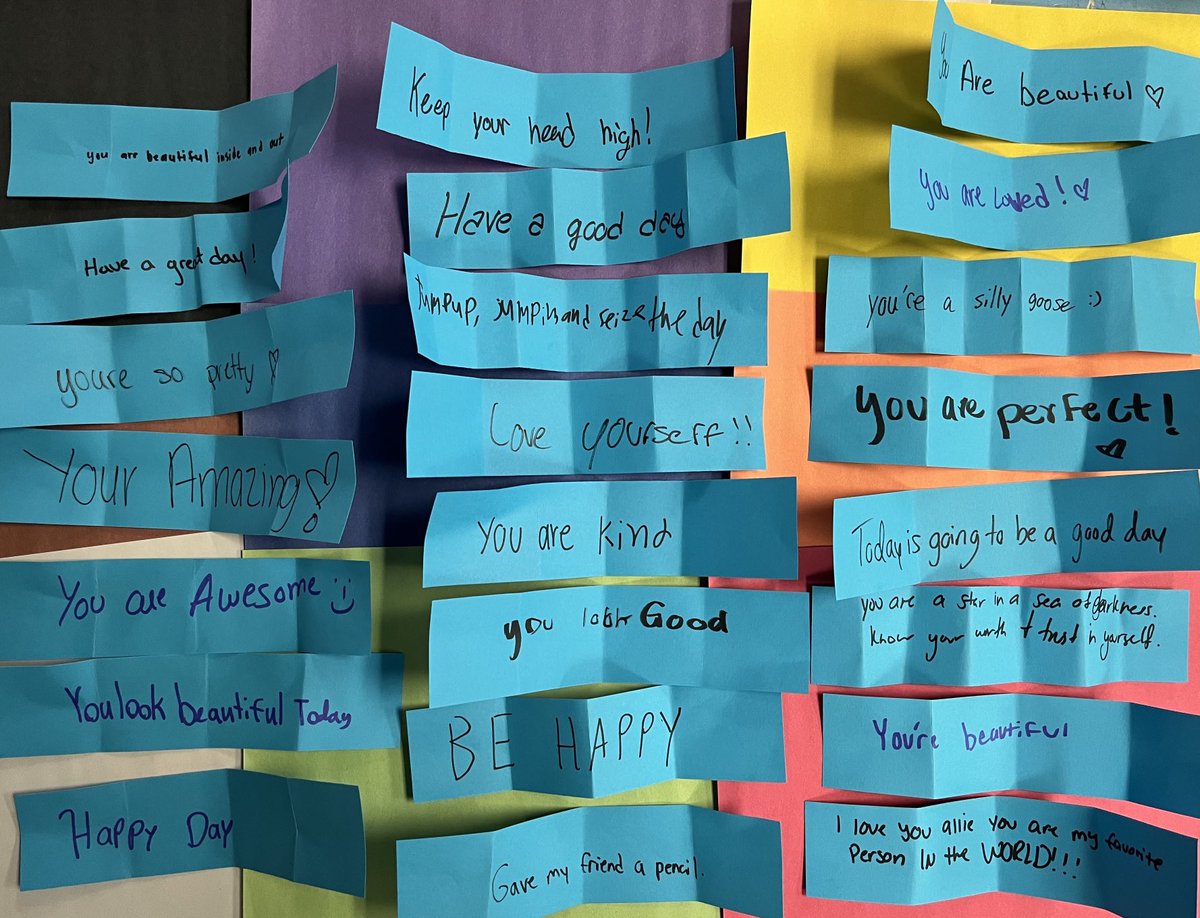 you are beautiful inside and out
Have a great day!
youre so pretty
Your Amazing!
You are Awesome
You look beautiful Today
Happy Day
Keep your head high!
Have a good day
Jump up, jump in, and seize the day
Love yourself!!
You are kind
you look Good
BE HAPPY
Gave my friend a pencil.
You Are beautiful ♡
You are Loved! ♡
you're a silly goose :)
You are perfect!
Today is going to be a good day
you are a star in a sea of darkness.
know your worth + trust in yourself.
You're beautiful
I love you allie You are my favorite
Person IN the WORLD!!!